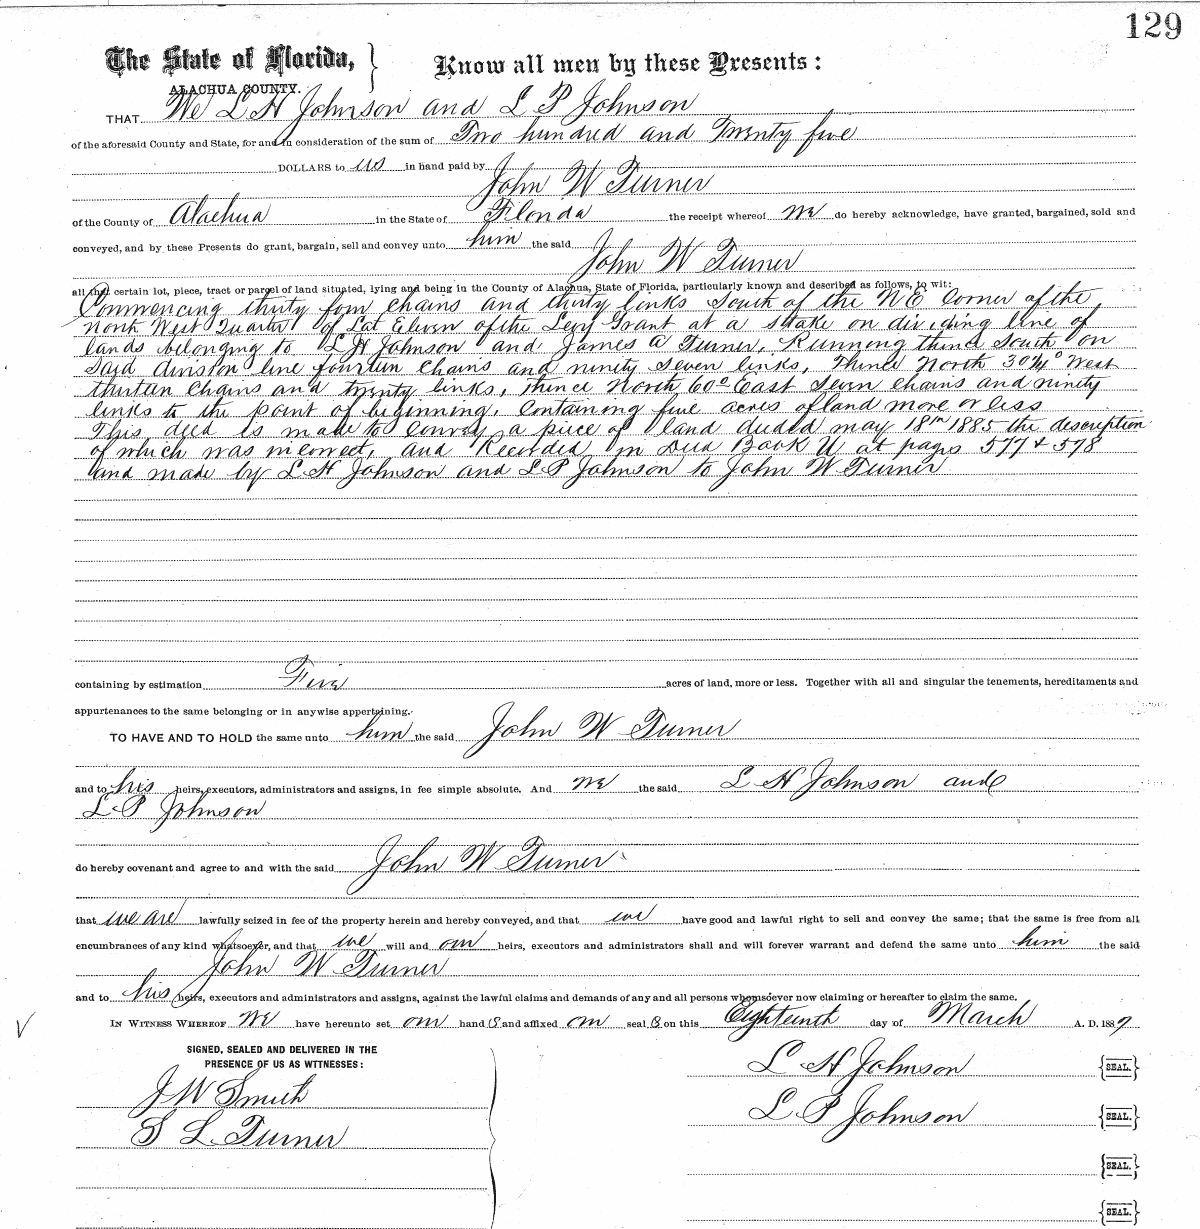 129
The State of Florida, } Know all men by these Presents:
ALACHUA COUNTY.
THAT We L H Johnson and L P Johnson
of the aforesaid County and State, for and in consideration of the sum of Two hundred and Twenty five
DOLLARS to us in hand paid by
John W Turner
of the County of Alachua in the State of Florida the receipt whereof we do hereby acknowledge, have granted, bargained, sold and
conveyed, and by these Presents do grant, bargain, sell and convey unto him the said
John W Turner
all that certain lot, piece, tract or parcel of land situated, lying and being in the County of Alachua, State of Florida, particularly known and described as follows, to wit:
Commencing thirty four chains and thirty links South of the NE Corner of the
North West Quarter of Lot Eleven of the Levy Grant at a stake on dividing line of
lands belonging to L H Johnson and James A Turner, Running thence South on
said division line fourteen chains and ninety seven links, thence North 30¼° West
thirteen chains and twenty links, thence North 60° East Seven chains and ninety
links to the point of beginning, Containing five acres of land more or less
This deed is made to convey a piece of land deeded may 18th 1885 the description
of which was incorrect, and Recorded in Deed Book U at pages 577 & 578
and made by L H Johnson and L P Johnson to John W Turner
containing by estimation Five acres of land, more or less. Together with all and singular the tenements, hereditaments and
appurtenances to the same belonging or in anywise appertaining.
TO HAVE AND TO HOLD the same unto him the said John W Turner
and to his heirs, executors, administrators and assigns, in fee simple absolute. And we the said L H Johnson and
L P Johnson
do hereby covenant and agree to and with the said John W Turner
that we are lawfully seized in fee of the property herein and hereby conveyed, and that we have good and lawful right to sell and convey the same; that the same is free from all
encumbrances of any kind whatsoever, and that we will and our heirs, executors and administrators shall and will forever warrant and defend the same unto him the said
John W Turner
and to his heirs, executors and administrators and assigns, against the lawful claims and demands of any and all persons whomsoever now claiming or hereafter to claim the same.
IN WITNESS WHEREOF we have hereunto set our hand s and affixed our seal s on this Eighteenth day of March A. D. 1887
SIGNED, SEALED AND DELIVERED IN THE
PRESENCE OF US AS WITNESSES:
J W Smith
S L Turner
L H Johnson {SEAL.}
L P Johnson {SEAL.}
{SEAL.}
{SEAL.}